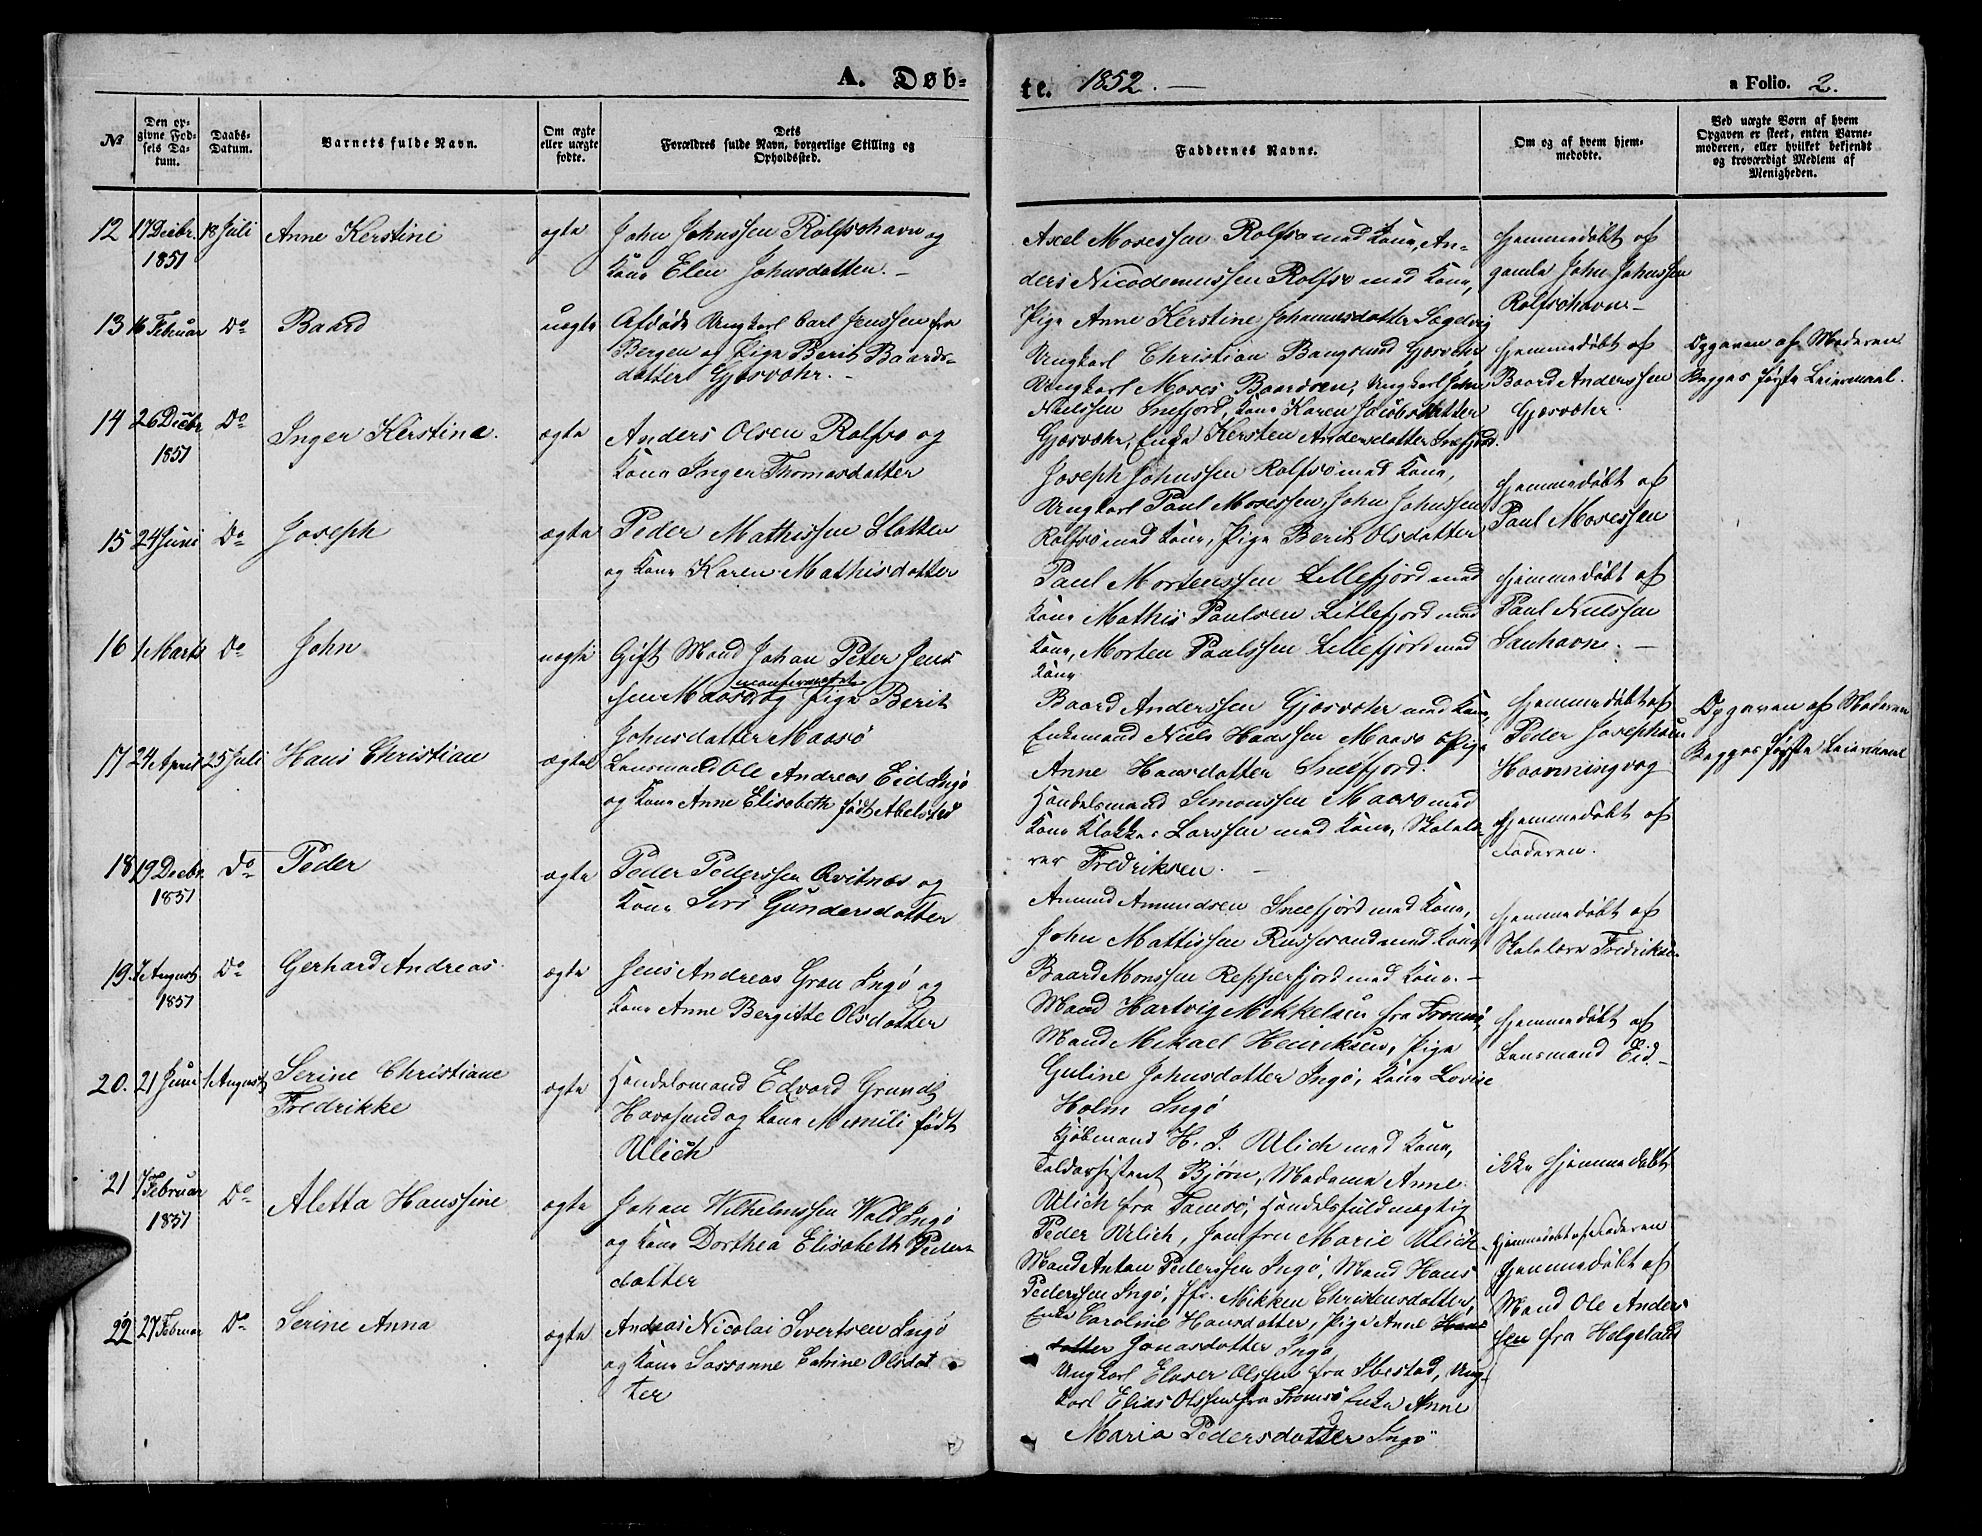 A. Døb=
te. 1852. —
a Folio. 2.
№
Den op-
givne Fød-
sels Da-
tum.
Daabs-
Datum.
Barnets fulde Navn.
Om ægte
eller uægte
fødte.
Dets
Forældres fulde Navn, borgerlige Stilling og
Opholdssted.
Faddernes Navne.
Om og af hvem hjem-
medøbte.
Ved uægte Børn af hvem
Opgaven er skeet, enten Barne-
moderen, eller hvilket bekjendt
og troværdigt Medlem af
Menigheden.
12 17 Decbr. 1851 18 Juli Anne Kerstine ægte
John Johnssen Rolfsøhavn og
Kone Elen Johnsdatter. —
Axel Mosessen Rolfsø med Kone, An-
ders Nicodemussen Rolfsø med Kone,
Pige Anne Kerstine Johannesdatter
Hjemmedøbt af
gamle John Johnssen
Rolfsøhavn —
13 16 Februar Do Baard uægte
Afdøde Ungkarl Carl Jenssen fra
Bergen og Pige Berit Baards-
datter Gjæsvær. —
Ungkarl Christian Bangsund Gjæsvær
Ungkarl Moses Baardsen, Ungkarl John
Nielssen Snefjord, Kone Karen Jacobsdatter
Gjæsvær, Enke Kersten Andersdatter Snefjord.
Hjemmedøbt af
Baard Anderssen
Gjæsvær.
Opgaven af Moderen
Begges første Leiermaal.
14 26 Decbr 1851 Do Inger Kerstina. ægte
Anders Olsen Rolfsø og
Kone Inger Thomasdatter
Joseph Johnssen Rolfsø med Kone,
Ungkarl Paul Mosessen, John Johnssen
Rolfsø med Kone, Pige Berit Olsdatter
Hjemmedøbt af
Paul Mosessen
15 24 Juni Do Joseph ægte
Peder Mathissen Slotten
og Kone Karen Mathisdatter
Paul Mortenssen Lillefjord med
Kone Mathis Paulsen Lillefjord med
Kone, Morten Paulssen Lillefjord med
Kone
Hjemmedøbt af
Paul Nielssen
Sanhavn. —
16 1 Marts Do John uægte
Gift Mand Johan Peter Jens
sen Maasø og Pige Berit
Johnsdatter Maasø
Baard Anderssen Gjæsvær med Kone,
Enkemand Niels Hanssen Maasø Pige
Anne Hansdatter Snefjord.
Hjemmedøbt af
Peder Josephsen
Haavningvog
Opgaven af Moderen
Begges første Leiermaal
17 24 April 25 Juli Hans Christian ægte
Lensmand Ole Andreas Eid Ingø
og Kone Anne Elisabeth født Abelsted
Handelsmand Simonssen Maasø med
Kone Klokker Larssen med Kone, Skolelæ-
rer Fredriksen. —
Hjemmedøbt af
Faderen.
18 19 Decbr. 1851 Do Peder ægte
Peder Pederssen Qvitnæs og
Kone Siri Gundersdatter
Amund Amundsen Snefjord med Kone,
John Mattissen Russesund med Kone
Baard Monssen Repperfjord med Kone. —
Hjemmedøbt af
Skolelærer Fredriksen
19 7 August 1851 Do Gerhard Andreas ægte
Jens Andreas Gran Ingø og
Kone Anne Bergitte Olsdatter
Mand Hartvig Mikkelsen fra Tromsø,
Mand Mikael Henriksen, Pige
Guline Johnsdatter Ingø, Kone Lovise
Holm Ingø
Hjemmedøbt af
Lensmand Eid —
20. 21 Juni 1 August Serine Christiane
Fredrikke ægte
Handelsmand Edvard Grundt
Havøsund og Kone M. Emili født
Ulich
Kjøbmand H. J. Ulich med Kone,
Toldassistent Bjørn, Madame Anne
Ulich fra Tamsø, Handelsfuldmægtig
Peder Ulich, Jomfru Marie Ulich
ikke Hjemmedøbt
21 7 Februar 1851 Do Aletta Hanssine ægte
Johan Wilhelmssen Wold Ingø
og Kone Dorthea Elisabeth Peders
datter
Mand Anton Pederssen Ingø, Mand Hans
Pederssen Ingø, Mikken Christensdatter,
Enke Caroline Hansdatter, Pige Anne
datter Jonasdatter Ingø
Hjemmedøbt af Faderen
22 27 Februar Do Serine Anna ægte
Andreas Nicolai Sivertsen Ingø
og Kone Sosanne Catrine Olsdat
ter
Ungkarl Elover Olssen fra Ibestad, Ung-
karl Elias Olssen fra Tromsø Enke Anne
Maria Pedersdatter Ingø
Hjemmedøbt af
Mand Ole Anders
sen fra Helgeland